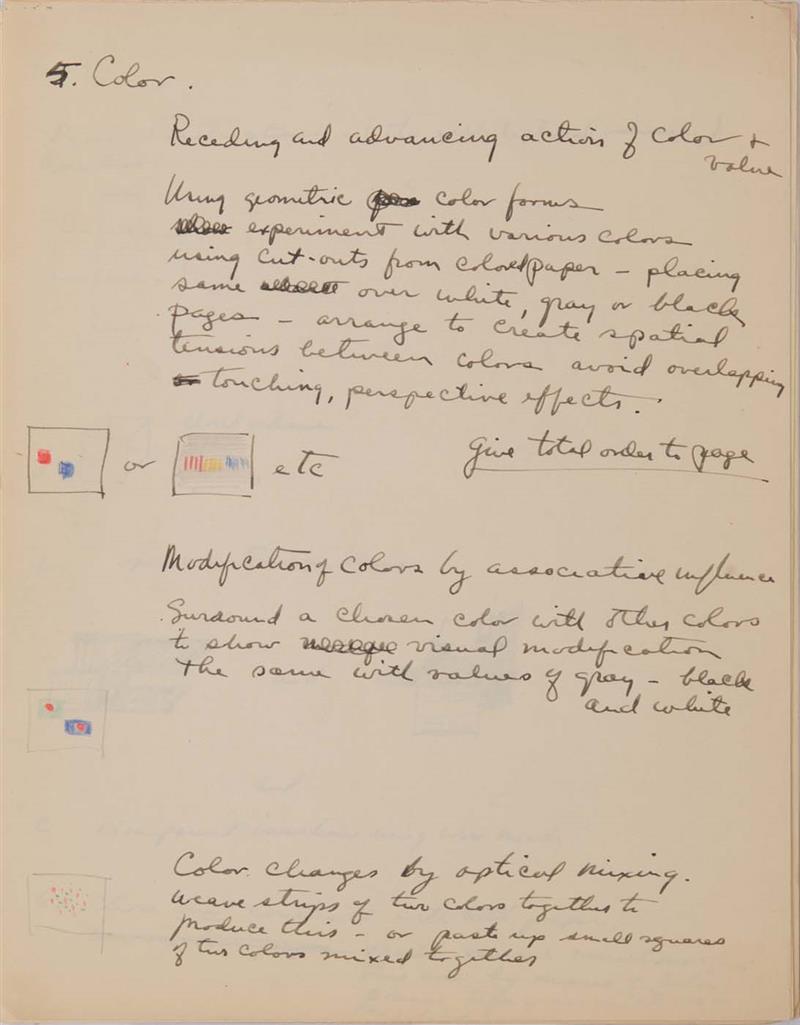 5. Color.
Receding and advancing action of color +
value
Using geometric color forms
experiment with various colors
using cut-outs from colored paper – placing
same over white, gray or black
pages – arrange to create spatial
tensions between colors avoid overlapping
touching, perspective effects.
or etc
Give total order to page
Modification of colors by associative influence
Surround a chosen color with other colors
to show visual modification
the same with values of gray – black
and white
Color changes by optical mixing.
weave strips of two colors together to
produce this – or paste up small squares
of two colors mixed together